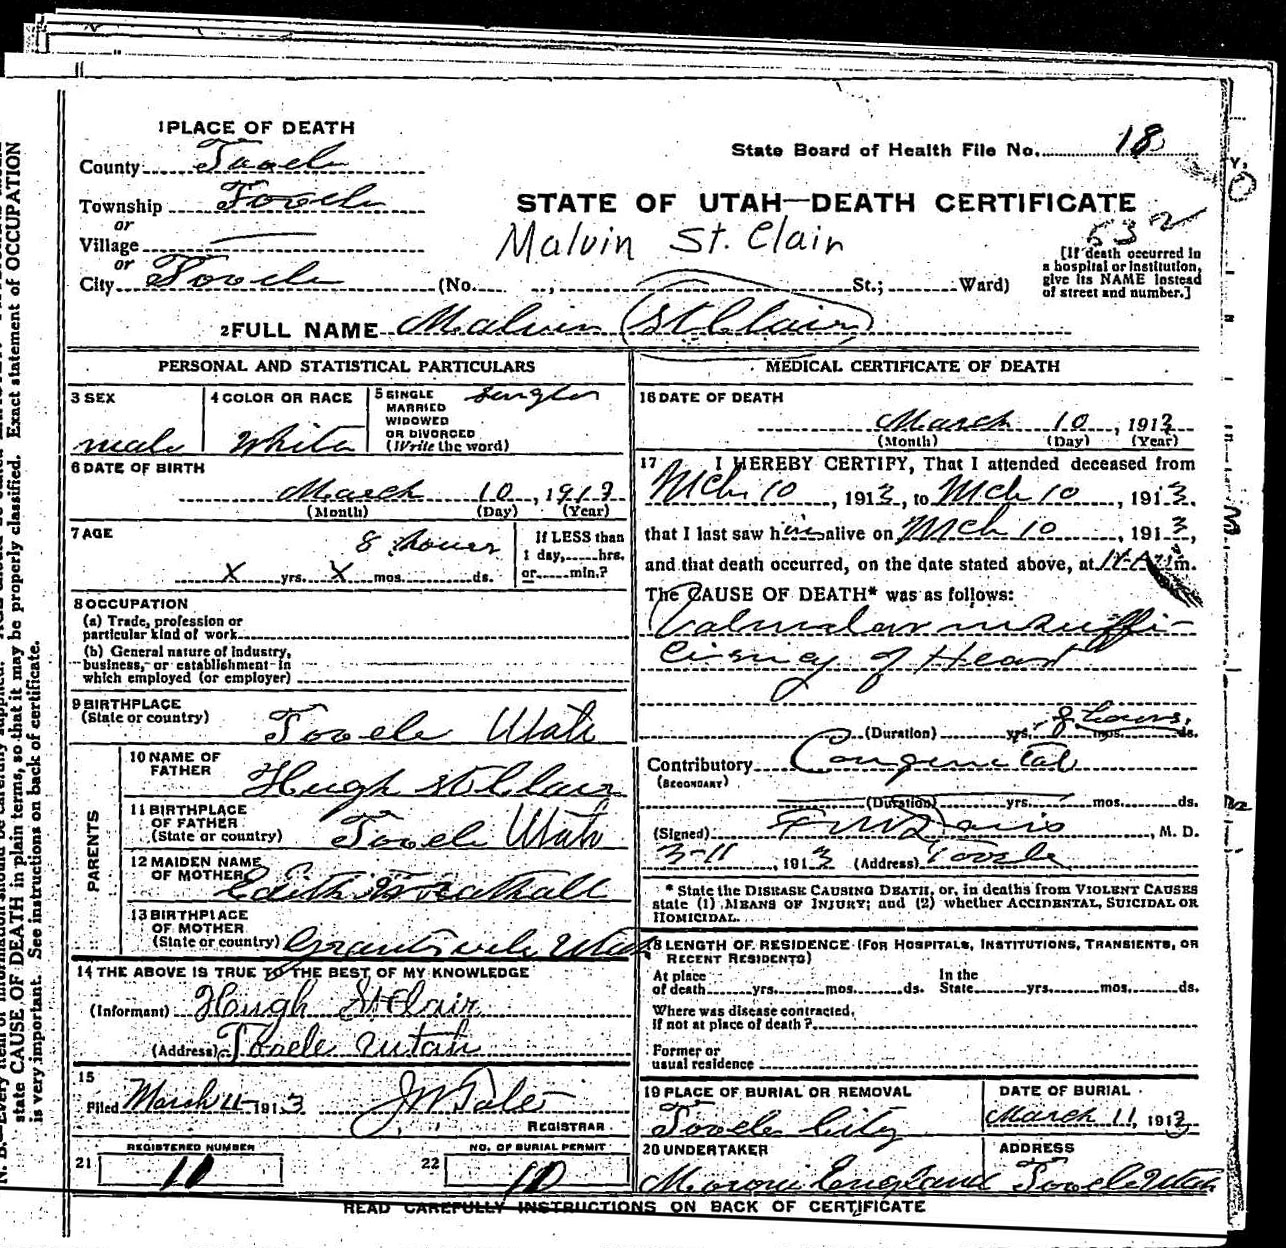 1 PLACE OF DEATH
County Tooele
State Board of Health File No. 18
Township Tooele
or
Village
or
City Tooele
STATE OF UTAH—DEATH CERTIFICATE
532
Malvin St. Clair
(No. , St.; Ward)
[If death occurred in
a hospital or institution,
give its NAME instead
of street and number.]
2 FULL NAME Malvin St Clair
PERSONAL AND STATISTICAL PARTICULARS
3 SEX
male
4 COLOR OR RACE
White
5 SINGLE
MARRIED
WIDOWED
OR DIVORCED
(Write the word)
Single
6 DATE OF BIRTH
March 10, 1913
(Month) (Day) (Year)
7 AGE
8 hours
X yrs. X mos. ds.
If LESS than
1 day, hrs.
or min.?
8 OCCUPATION
(a) Trade, profession or
particular kind of work
(b) General nature of industry,
business, or establishment in
which employed (or employer)
9 BIRTHPLACE
(State or country)
Tooele Utah
PARENTS
10 NAME OF
FATHER
Hugh St Clair
11 BIRTHPLACE
OF FATHER
(State or country)
Tooele Utah
12 MAIDEN NAME
OF MOTHER
Edith
13 BIRTHPLACE
OF MOTHER
(State or country)
Grantsville Utah
14 THE ABOVE IS TRUE TO THE BEST OF MY KNOWLEDGE
(Informant) Hugh St Clair
(Address) Tooele Utah
15
Filed March 11 1913
REGISTRAR
REGISTERED NUMBER
21 10
NO. OF BURIAL PERMIT
22 10
MEDICAL CERTIFICATE OF DEATH
16 DATE OF DEATH
March 10, 1913
(Month) (Day) (Year)
17 I HEREBY CERTIFY, That I attended deceased from
Mch 10, 1913, to Mch 10, 1913.
that I last saw him alive on Mch 10, 1913,
and that death occurred, on the date stated above, at m.
The CAUSE OF DEATH* was as follows:
Valvular insuffi-
ciency of Heart
(Duration) yrs. 8 hours. mos. ds.
Contributory Congenital
(SECONDARY)
(Duration) yrs. mos. ds.
(Signed) F M Davis, M. D.
3-11, 1913 (Address) Tooele
* State the DISEASE CAUSING DEATH, or, in deaths from VIOLENT CAUSES
state (1) MEANS OF INJURY; and (2) whether ACCIDENTAL, SUICIDAL OR
HOMICIDAL.
18 LENGTH OF RESIDENCE (FOR HOSPITALS, INSTITUTIONS, TRANSIENTS, OR
RECENT RESIDENTS)
At place
of death yrs. mos. ds.
In the
State yrs. mos. ds.
Where was disease contracted,
If not at place of death?
Former or
usual residence
19 PLACE OF BURIAL OR REMOVAL
Tooele City
DATE OF BURIAL
March 11, 1913
20 UNDERTAKER
Moroni England
ADDRESS
Tooele Utah
READ CAREFULLY INSTRUCTIONS ON BACK OF CERTIFICATE
state CAUSE OF DEATH in plain terms, so that it may be properly classified. Exact statement of OCCUPATION
is very important. See instructions on back of certificate.